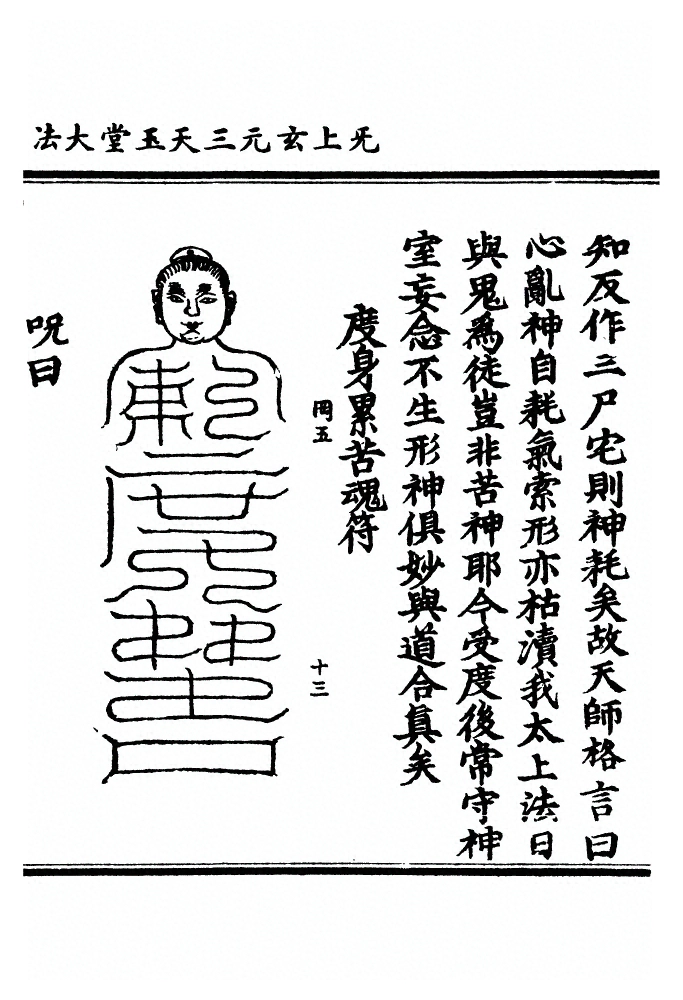 旡上玄元三天玉堂大法
知反作三尸宅則神耗矣故天師格言曰
心亂神自耗氣索形亦枯瀆我太上法日
與鬼爲徒豈非苦神耶今受度後常守神
室妄念不生形神俱妙與道合眞矣
度身累苦魂符
岡五
十三
呪曰